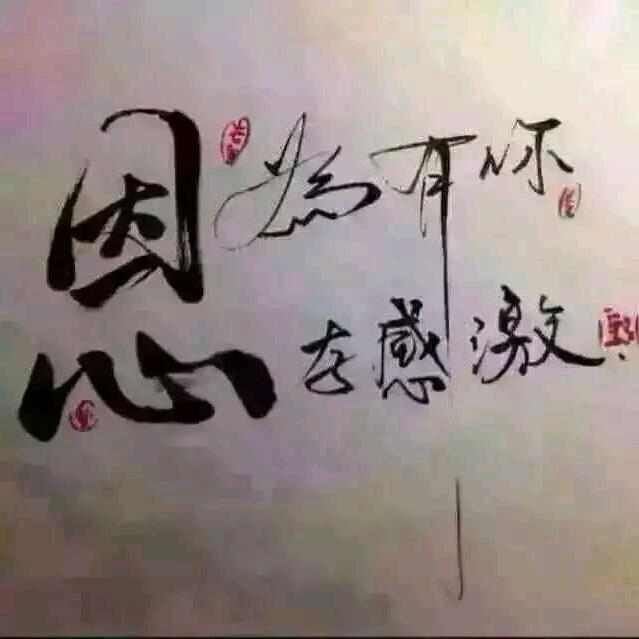 因為有你
心存感激